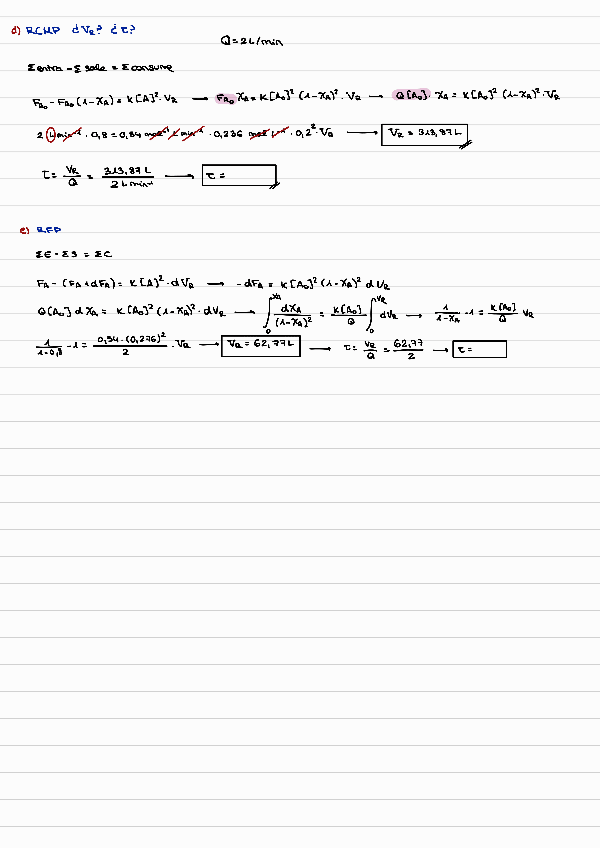 d) RCMP ¿VR? ¿τ?
Q = 2 L/min
Σ entra - Σ sale = Σ consume
FA₀ - FA₀ (1-XA) = K[A]² · VR → FA₀ XA = K[A₀]² (1-XA)² · VR → Q[A₀] · XA = K[A₀]² (1-XA)² · VR
2 L min⁻¹ · 0,8 = 0,54 mol⁻¹ L min⁻¹ · 0,236 mol L⁻¹ · 0,2² VR → VR = 313,87 L
τ = VR/Q = 313,87 L / 2 L min⁻¹ → τ =
e) RFP
ΣE - ΣS = ΣC
FA - (FA + dFA) = K[A]² · dVR → -dFA = K[A₀]² (1-XA)² dVR
Q[A₀] dXA = K[A₀]² (1-XA)² · dVR → ∫₀^XA dXA/(1-XA)² = K[A₀]/Q ∫₀^VR dVR → 1/(1-XA) - 1 = K[A₀]/Q VR
1/(1-0,8) - 1 = 0,54·(0,276)²/2 · VR → VR = 62,77 L → τ = VR/Q = 62,77/2 → τ =